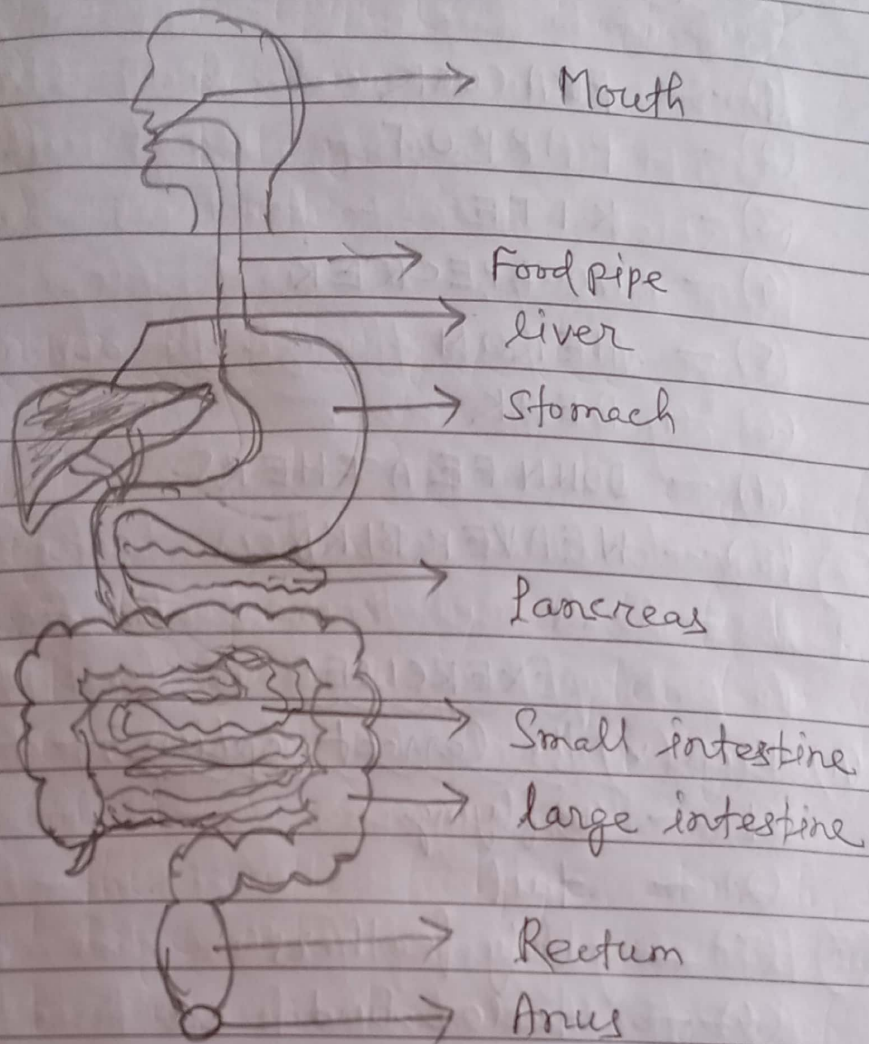 Mouth
Food pipe
liver
Stomach
Pancreas
Small intestine
large intestine
Rectum
Anus